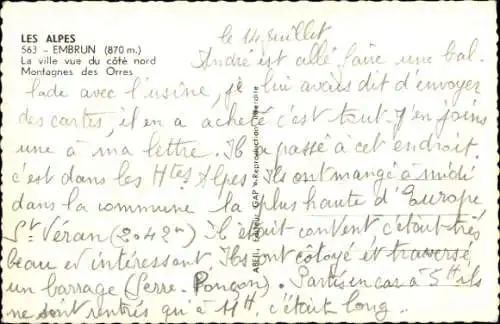 LES ALPES
563 - EMBRUN (870 m.)
La ville vue du côté nord
Montagnes des Orres
le 14 juillet
André est allé faire une bal-
lade avec l'usine, je lui avais dit d'envoyer
des cartes, il en a acheté c'est tout. J'en joins
une à ma lettre. Il a passé à cet endroit
c'est dans les Htes Alpes. Ils ont mangé à midi
dans la commune la plus haute d'Europe
St Véran (2.042m) Il était content c'était très
beau et intéressant. Ils ont côtoyé et traversé
un barrage (Serre-Ponçon). Partis en car à 5H ils
ne sont rentrés qu'à 11H. c'était long.
GAP - Reproduction interdite